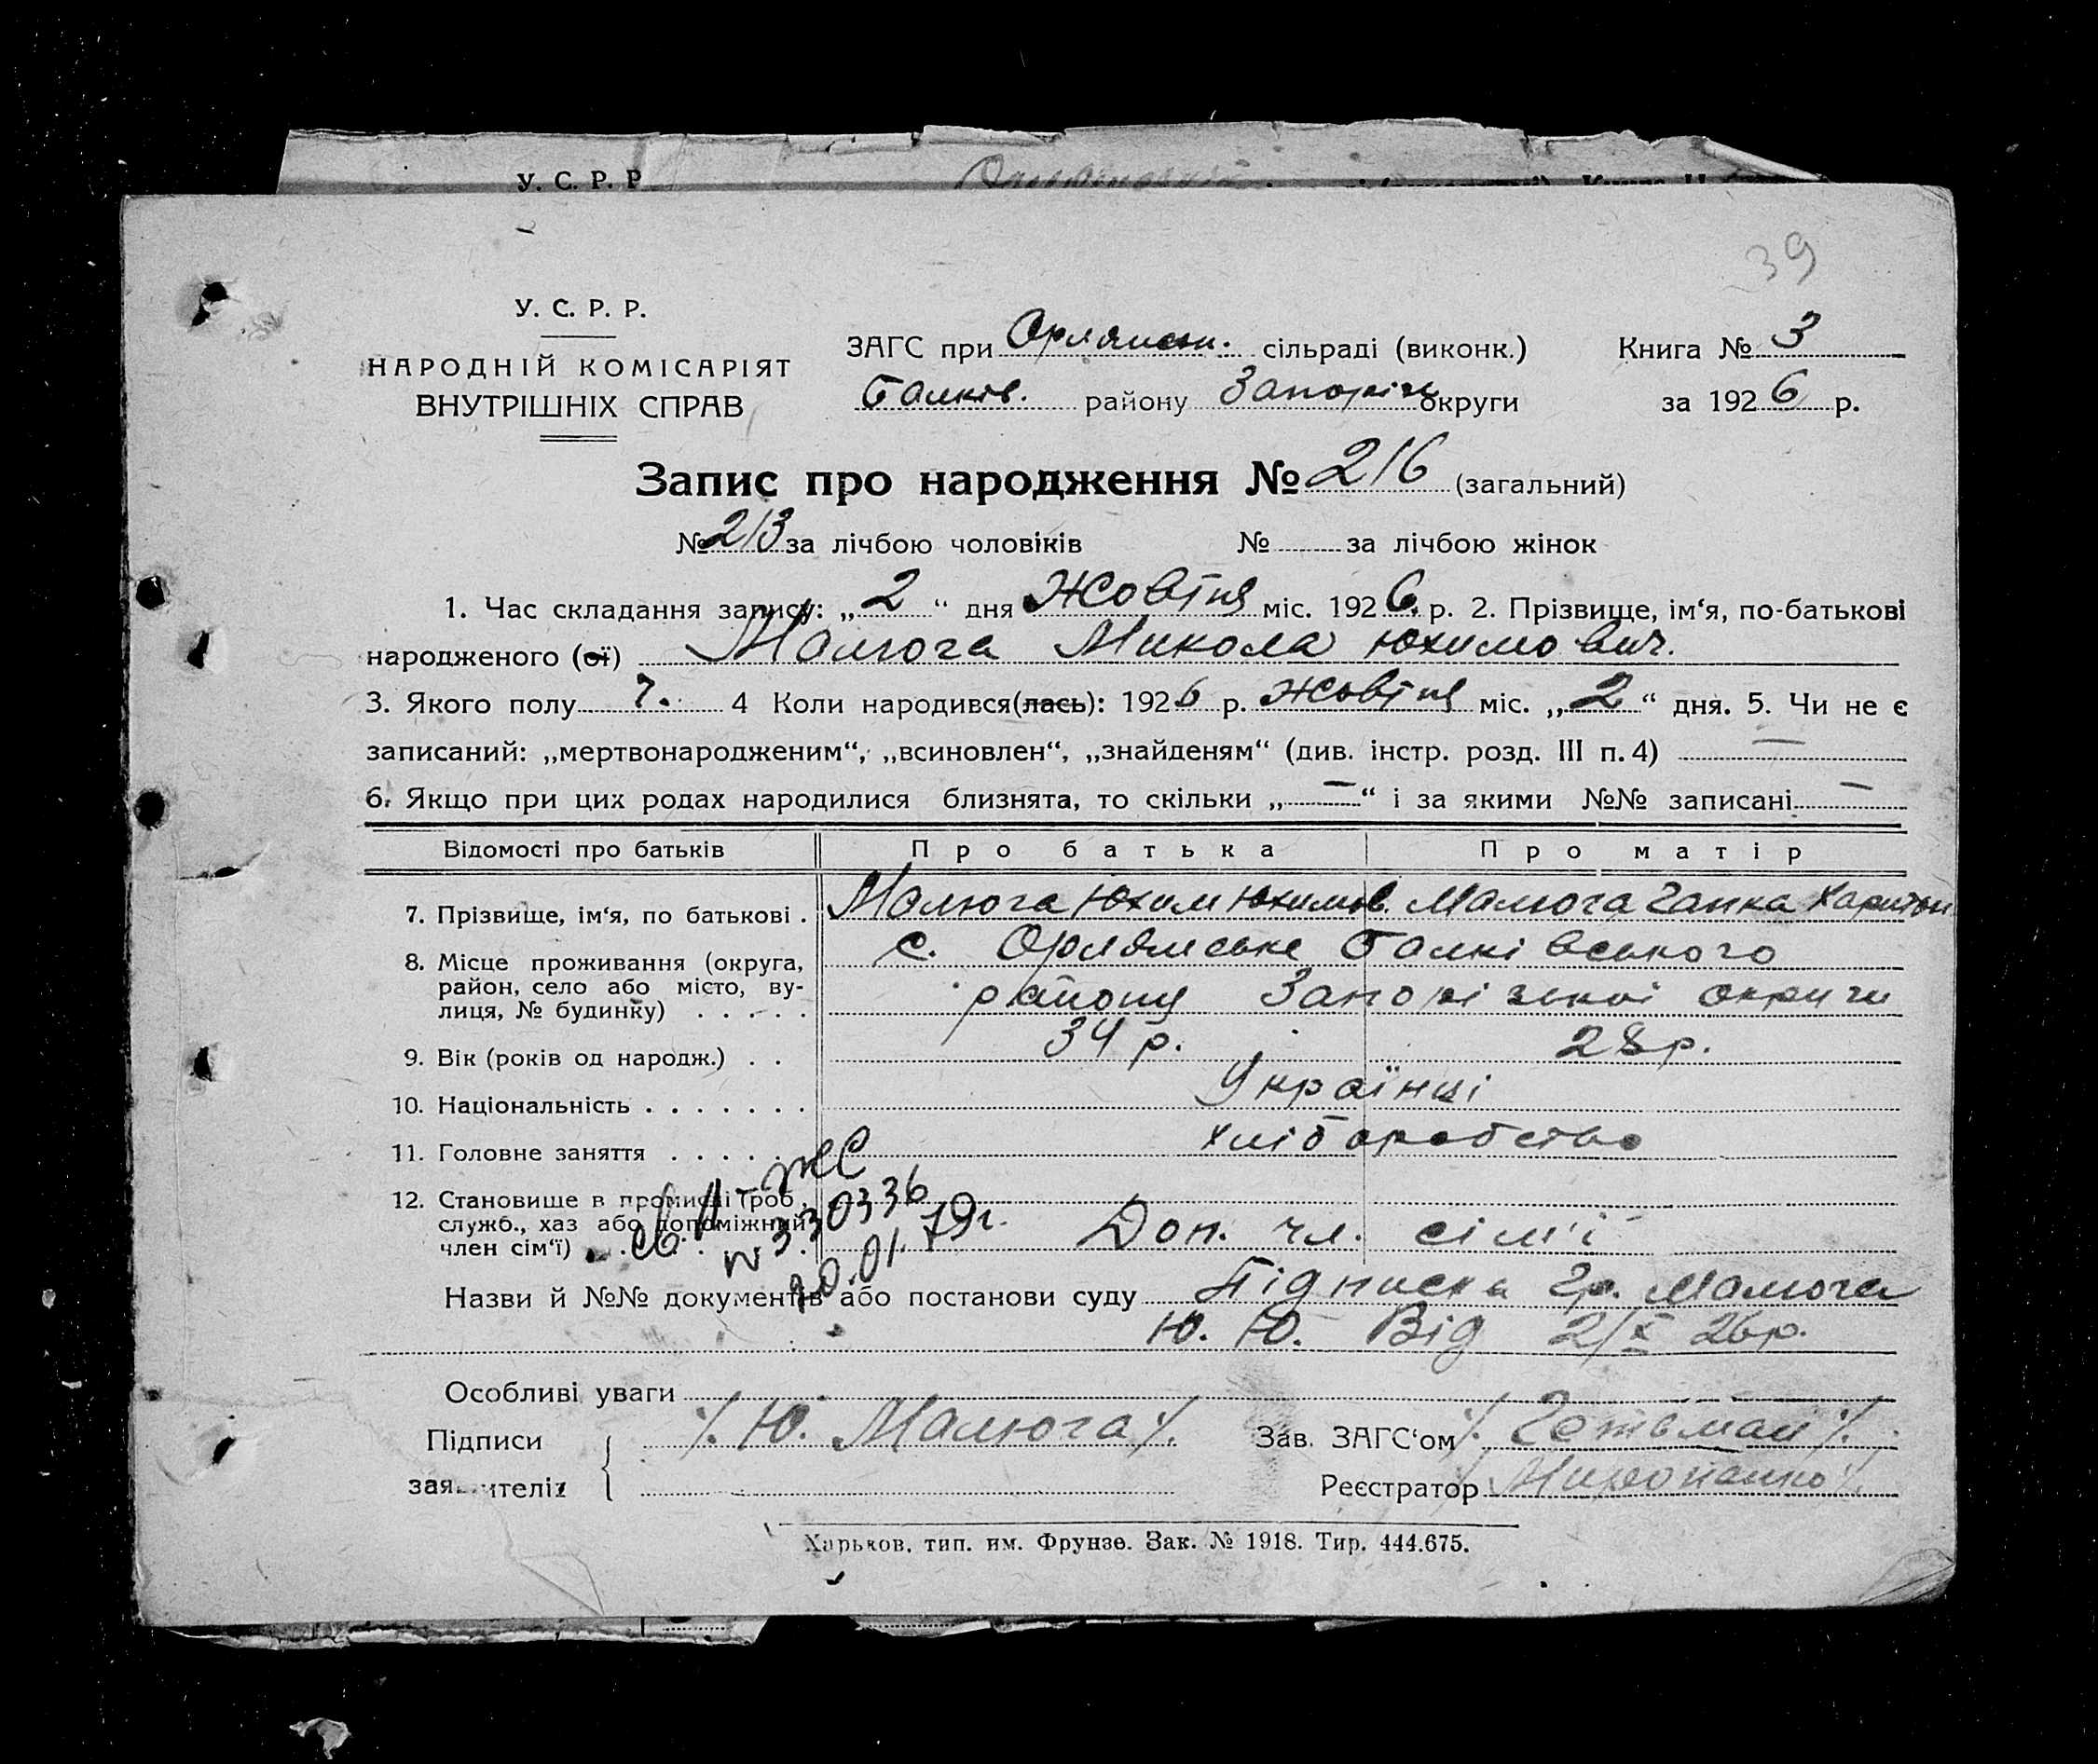 У. С. Р. Р
39
У. С. Р. Р.
НАРОДНІЙ КОМІСАРІЯТ
ВНУТРІШНІХ СПРАВ
ЗАГС при Орлянськ. сільраді (виконк.)
Балків. району Запоріж округи
Книга № 3
за 1926 р.
Запис про народження № 216 (загальний)
№ 213 за лічбою чоловіків № за лічбою жінок
1. Час складання запису: „2“ дня Жовтня міс. 1926 р. 2. Прізвище, ім‘я, по-батькові
народженого (ої) Малюга Микола Юхимович.
3. Якого полу ч. 4 Коли народився(лась): 1926 р. Жовтня міс. „2“ дня. 5. Чи не є
записаний: „мертвонародженим“, „всиновлен“, „знайденям“ (див. інстр. розд. III п. 4) —
6. Якщо при цих родах народилися близнята, то скільки „—“ і за якими №№ записані —
Відомості про батьків Про батька Про матір
7. Прізвище, ім‘я, по батькові . Малюга Юхим Юхимов. Малюга Ганка Харитон
8. Місце проживання (округа, район, село або місто, вулиця, № будинку) . . . . . с. Орлянське Балківського
району Запорізької округи
9. Вік (років од народж.) . . 34 р. 28 р.
10. Національність . . . . . . . Українці
11. Головне заняття . . . . . хліборобство
12. Становище в промислі (роб., служб., хаз або допоміжний член сім‘ї) Доп. чл. сім'ї
№ 330336
20.01.79г.
Назви й №№ документів або постанови суду Підписка гр. Малюга
Ю. Ю. Від 2/X 26 р.
Особливі уваги
Підписи
заявителів
/. Ю. Малюга ./.
Зав. ЗАГС‘ом /. Гетьман ./.
Реєстратор / Мироненко /.
Харьков, тип. им. Фрунзе. Зак. № 1918. Тир. 444.675.